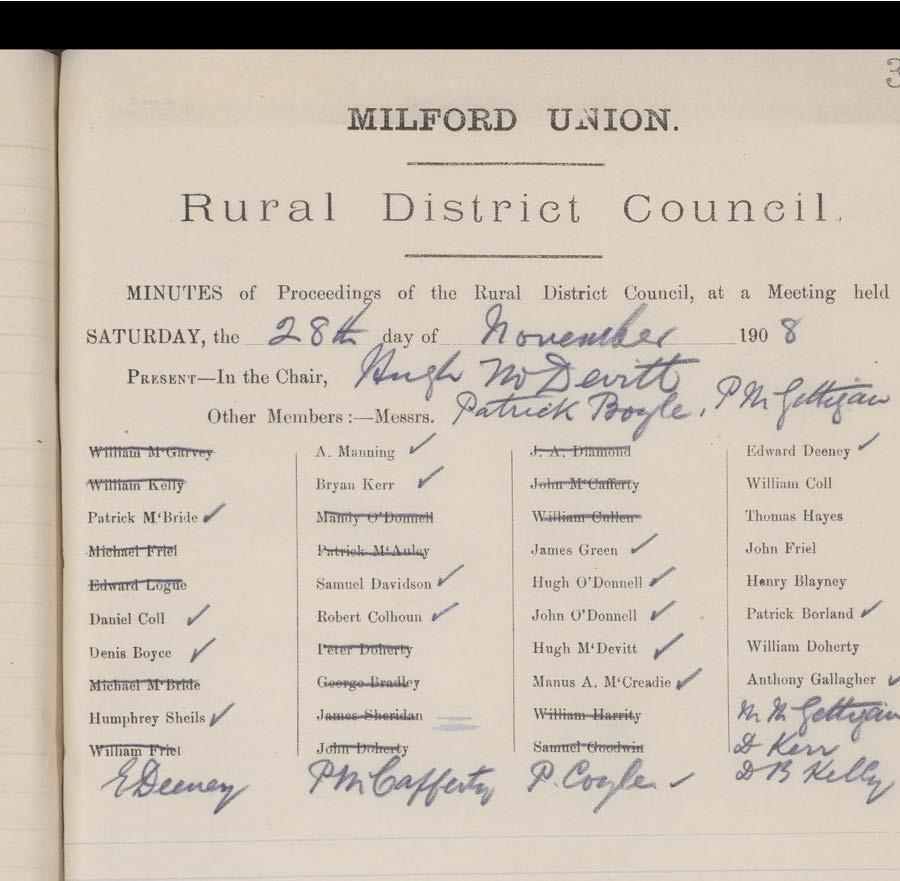 3
MILFORD UNION.
Rural District Council.
MINUTES of Proceedings of the Rural District Council, at a Meeting held
SATURDAY, the 28th day of November 1908
PRESENT—In the Chair, Hugh McDevitt
Other Members:—Messrs. Patrick Boyle, P McGettigan
William M'Garvey
William Kelly
Patrick M'Bride ✓
Michael Friel
Edward Logue
Daniel Coll ✓
Denis Boyce ✓
Michael M'Bride
Humphrey Sheils ✓
William Friel
E Deeney
A. Manning ✓
Bryan Kerr ✓
Mandy O'Donnell
Patrick M'Auley
Samuel Davidson ✓
Robert Colhoun ✓
Peter Doherty
George Bradley
James Sheridan
John Doherty
P McCafferty
J. A. Diamond
John M'Cafferty
William Cullen
James Green ✓
Hugh O'Donnell ✓
John O'Donnell ✓
Hugh M'Devitt ✓
Manus A. M'Creadie ✓
William Harrity
Samuel Goodwin
P. Coyle ✓
Edward Deeney ✓
William Coll
Thomas Hayes
John Friel
Henry Blayney
Patrick Borland ✓
William Doherty
Anthony Gallagher ✓
M McGettigan
D Kerr
D B Kelly